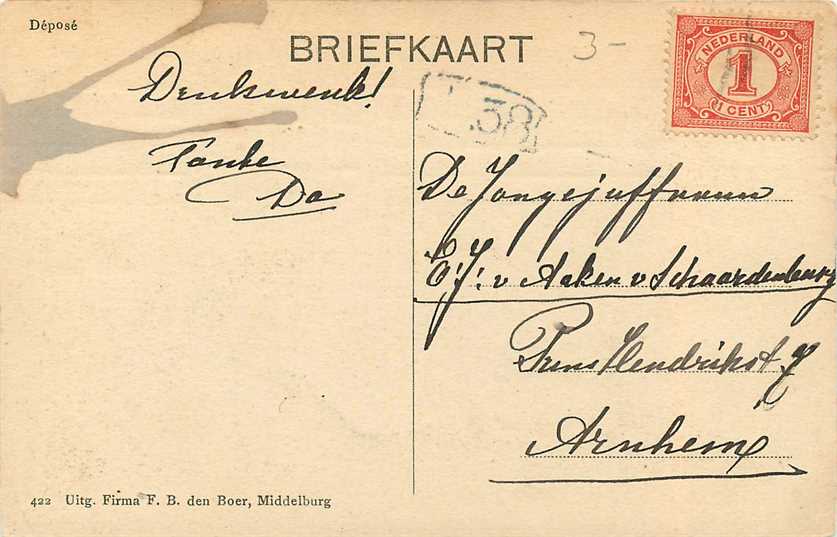 Déposé
BRIEFKAART
3-
NEDERLAND
1
1 CENT
38
Denkwenk!
Tante
Do
De Jongejuffrouw
E. J. v Aaken v Schaardenburg
Prins Hendrikst. 7
Arnhem
422 Uitg. Firma F. B. den Boer, Middelburg